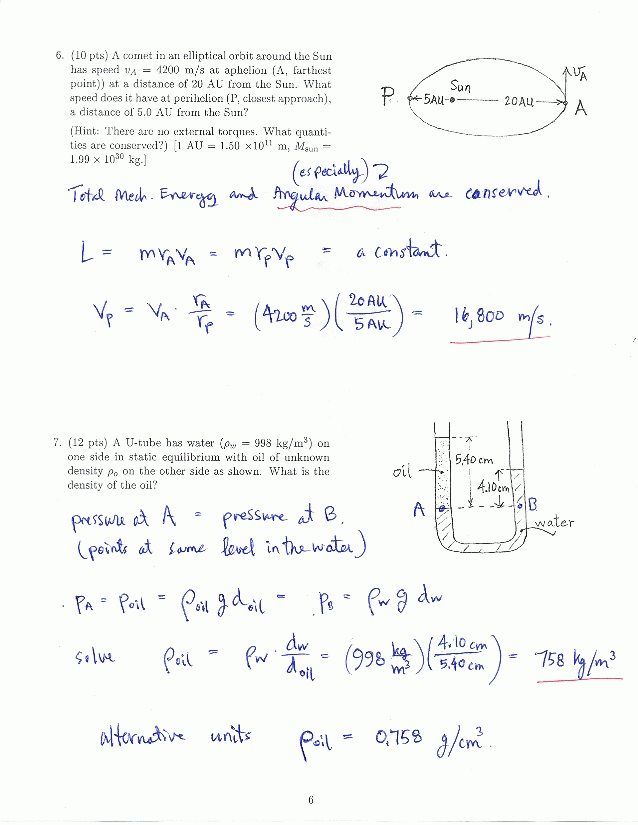 6. (10 pts) A comet in an elliptical orbit around the Sun
has speed v_A = 4200 m/s at aphelion (A, farthest
point)) at a distance of 20 AU from the Sun. What
speed does it have at perihelion (P, closest approach),
a distance of 5.0 AU from the Sun?
(Hint: There are no external torques. What quanti-
ties are conserved?) [1 AU = 1.50 ×10¹¹ m, M_sun =
1.99 × 10³⁰ kg.]
Sun
v_A
P
5AU
20AU
A
(especially)
Total Mech. Energy and Angular Momentum are conserved.
L = m r_A v_A = m r_P v_P = a constant.
V_P = V_A · r_A/r_P = (4200 m/s)(20AU/5AU) = 16,800 m/s.
7. (12 pts) A U-tube has water (ρ_w = 998 kg/m³) on
one side in static equilibrium with oil of unknown
density ρ_o on the other side as shown. What is the
density of the oil?
5.40 cm
oil
4.10cm
A
B
water
pressure at A = pressure at B.
(points at same level in the water)
P_A = P_oil = ρ_oil g d_oil = P_B = ρ_w g d_w
solve ρ_oil = ρ_w · d_w/d_oil = (998 kg/m³)(4.10 cm/5.40 cm) = 758 kg/m³
alternative units ρ_oil = 0.758 g/cm³.
6